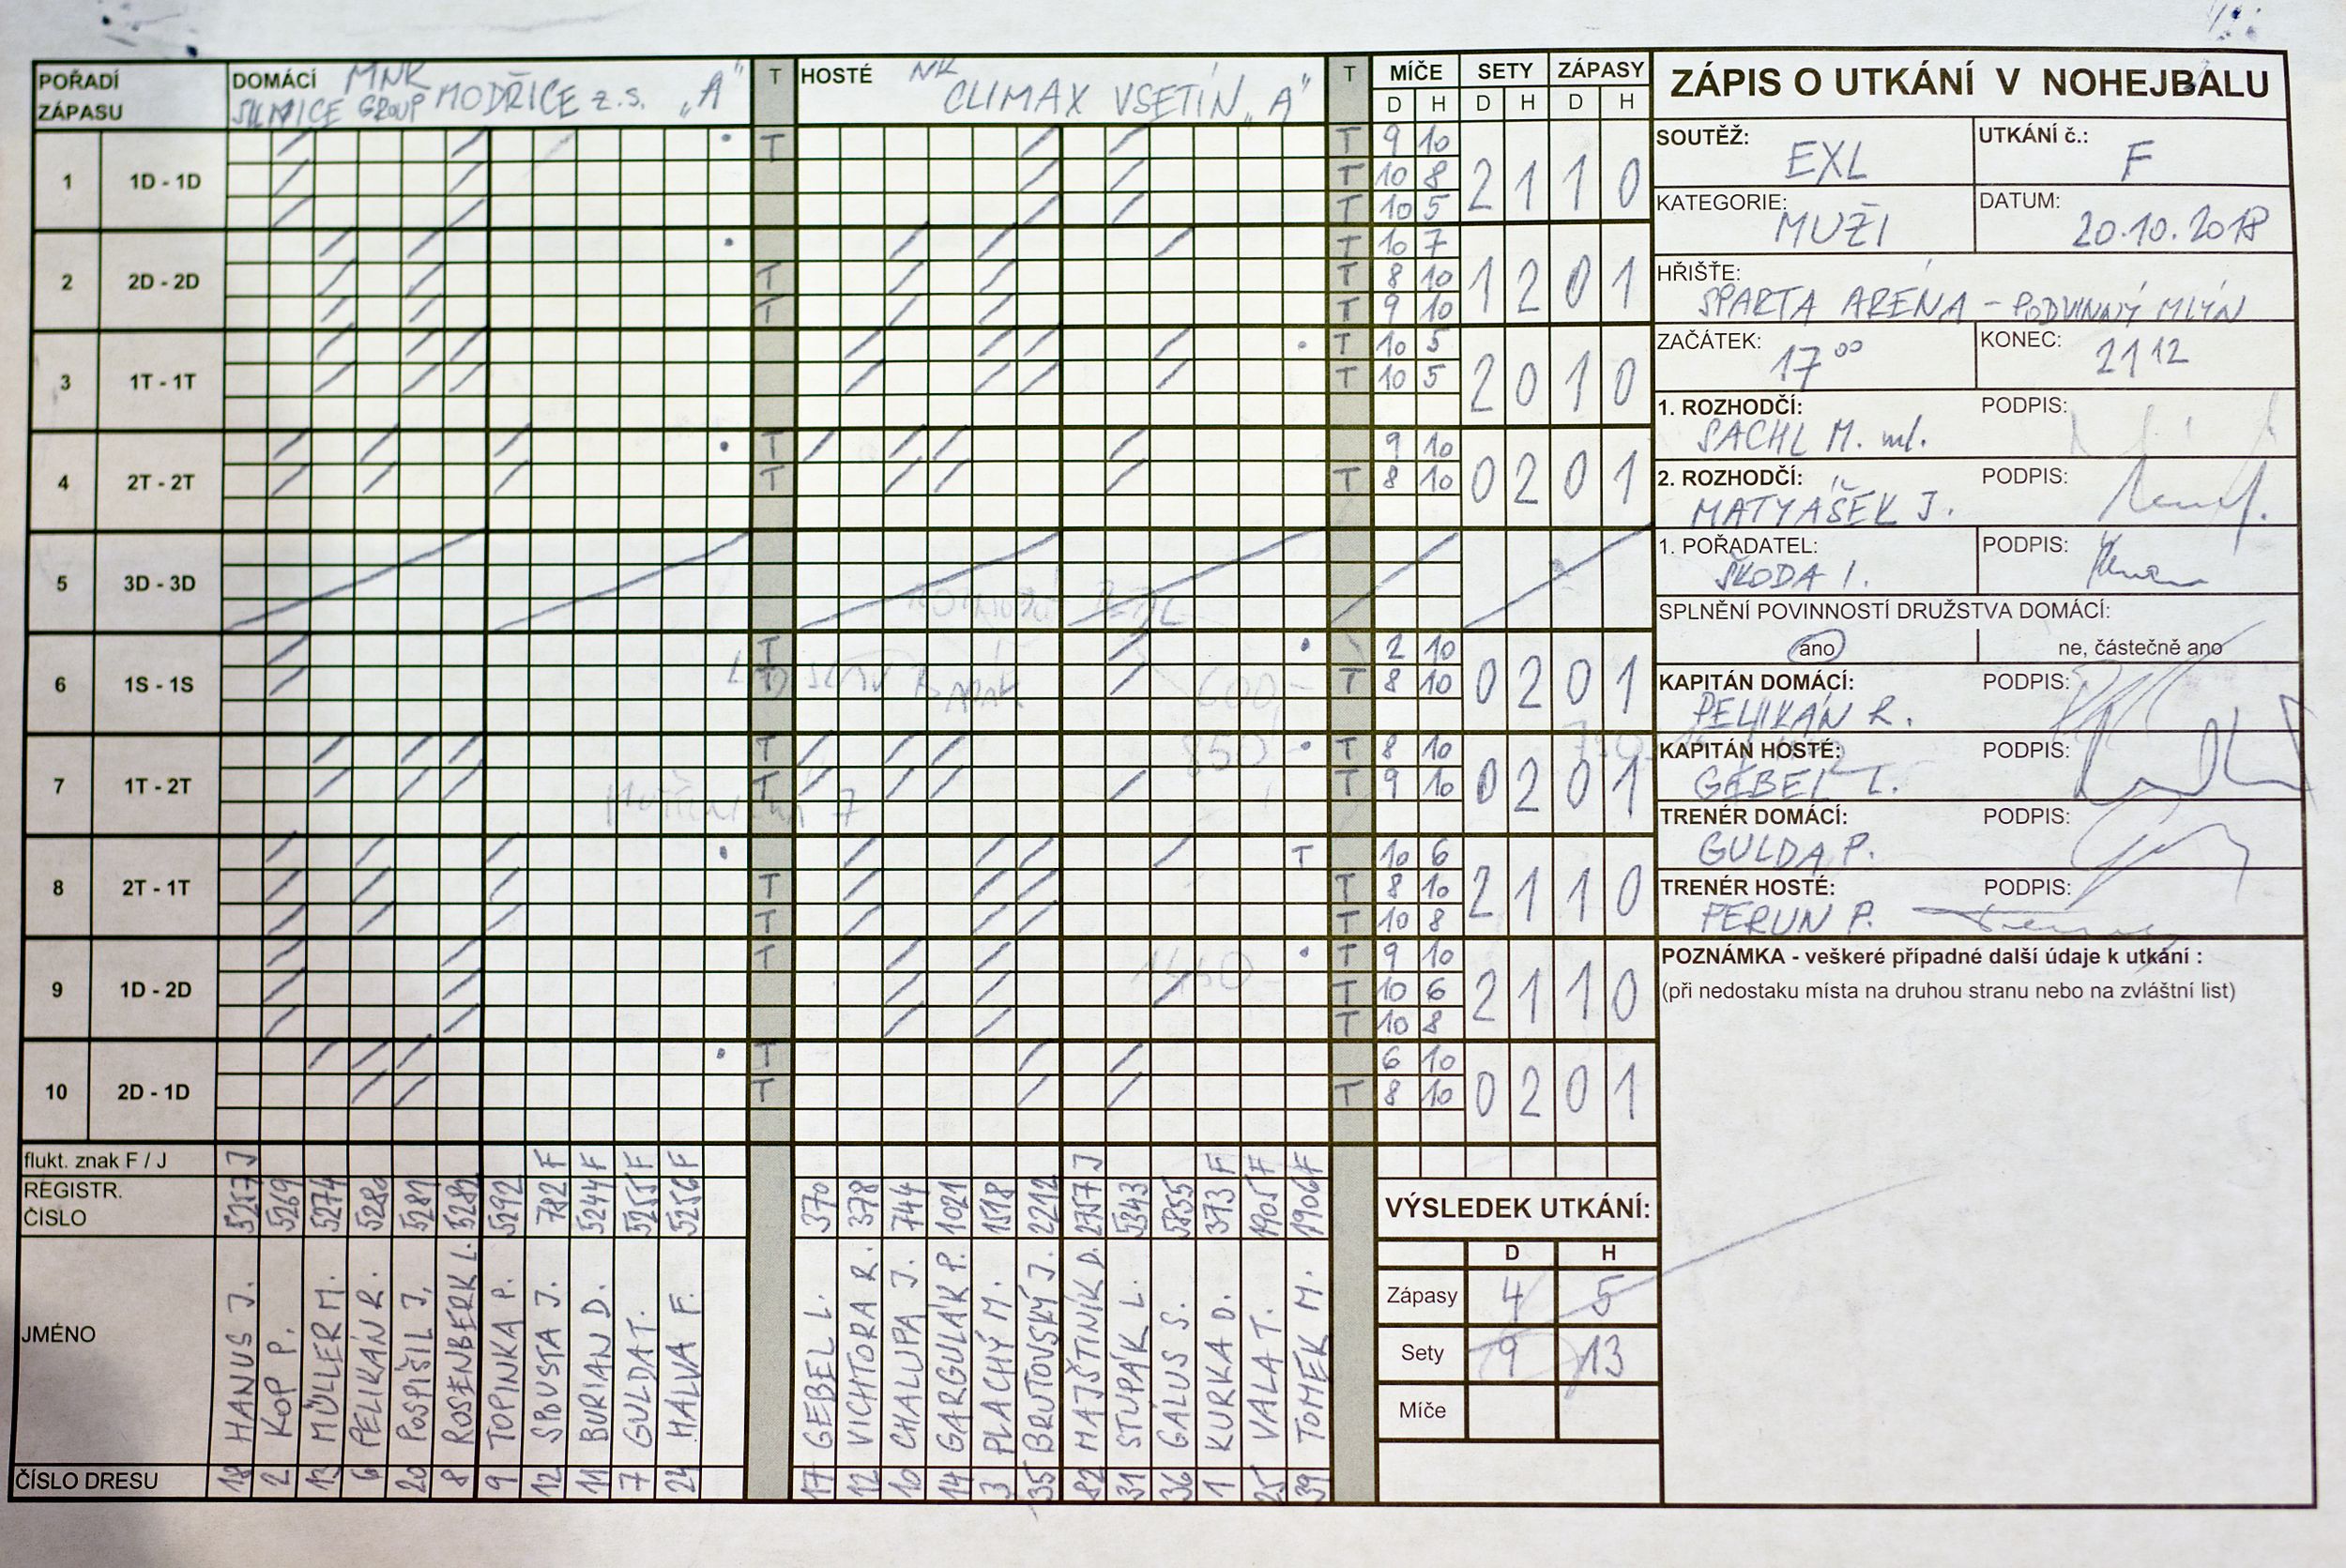 POŘADÍ ZÁPASU
DOMÁCÍ MNK
SILNICE GROUP MODŘICE z.s. „A"
T
HOSTÉ NK
CLIMAX VSETÍN „A"
T
MÍČE SETY ZÁPASY
D H D H D H
1 1D - 1D T T 9 10
T 10 8 2 1 1 0
T 10 5
2 2D - 2D T 10 7
T T 8 10 1 2 0 1
T T 9 10
3 1T - 1T T 10 5
T 10 5 2 0 1 0
4 2T - 2T T 9 10
T T 8 10 0 2 0 1
5 3D - 3D
6 1S - 1S T 2 10
T T 8 10 0 2 0 1
7 1T - 2T T T 8 10
T T 9 10 0 2 0 1
8 2T - 1T T 10 6
T T 8 10 2 1 1 0
T T 10 8
9 1D - 2D T T 9 10
T 10 6 2 1 1 0
T 10 8
10 2D - 1D T 6 10
T T 8 10 0 2 0 1
850
1460
flukt. znak F / J
J F F F F J F F F
REGISTR. ČÍSLO
5257 5269 5274 5280 5281 5282 5292 782 5244 5255 5256
370 378 744 1021 1518 2212 2757 5343 5855 373 1905 1906
JMÉNO
HANUS J.
KOP P.
MÜLLER M.
PELIKÁN R.
POSPÍŠIL J.
ROSENBERK L.
TOPINKA P.
SPOUSTA J.
BURIAN D.
GULDA T.
HALVA F.
GEBEL L.
VICHTORA R.
CHALUPA J.
GARGULÁK P.
PLACHÝ M.
BRUTOVSKÝ J.
MAJŠTINÍK D.
STUPÁK L.
GALUS S.
KURKA D.
VALA T.
TOMEK M.
ČÍSLO DRESU
18 2 13 6 20 8 9 12 11 7 24
17 12 10 14 3 35 82 31 36 1 25 39
VÝSLEDEK UTKÁNÍ:
D H
Zápasy 4 5
Sety 9 13
Míče
ZÁPIS O UTKÁNÍ V NOHEJBALU
SOUTĚŽ: EXL
UTKÁNÍ č.: F
KATEGORIE: MUŽI
DATUM: 20.10.2018
HŘIŠTĚ:
SPARTA ARENA - PODVINNÝ MLÝN
ZAČÁTEK: 17 00
KONEC: 21 12
1. ROZHODČÍ: PODPIS:
SACHL M. ml.
2. ROZHODČÍ: PODPIS:
MATYÁŠEK J.
1. POŘADATEL: PODPIS:
ŠKODA I.
SPLNĚNÍ POVINNOSTÍ DRUŽSTVA DOMÁCÍ:
ano ne, částečně ano
KAPITÁN DOMÁCÍ: PODPIS:
PELIKÁN R.
KAPITÁN HOSTÉ: PODPIS:
GEBEL L.
TRENÉR DOMÁCÍ: PODPIS:
GULDA P.
TRENÉR HOSTÉ: PODPIS:
PERUN P.
POZNÁMKA - veškeré případné další údaje k utkání :
(při nedostaku místa na druhou stranu nebo na zvláštní list)